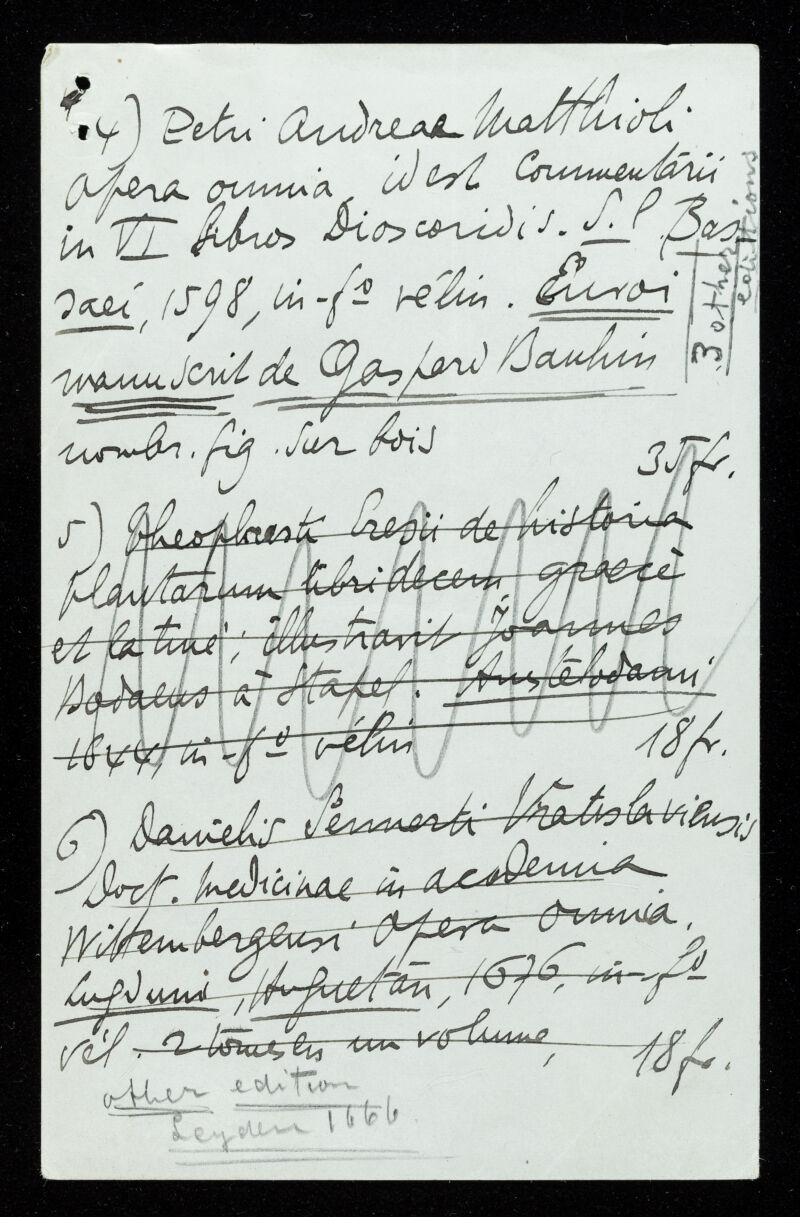 4) Petri Andreae Matthioli
opera omnia, id est Commentarii
in VI libros Dioscoridis. S. l. Bas
saei, 1598, in-fº vélin. Envoi
manuscrit de Gaspard Bauhin
nombr. fig. sur bois
35 fr.
3 other
editions
5) Theophrasti Eresii de historia
plantarum libri decem, graecè
et latinè; illustravit Joannes
Bodaeus à Stapel. Amstelodami
1644, in-fº vélin
18 fr.
6) Danielis Sennerti Vratislaviensis
Doct. Medicinae in academia
Wittembergensi opera omnia.
Lugduni, Huguetan, 1676, in-fº
vél. 2 tomes en un volume,
18 fr.
other edition
Leyden 1666